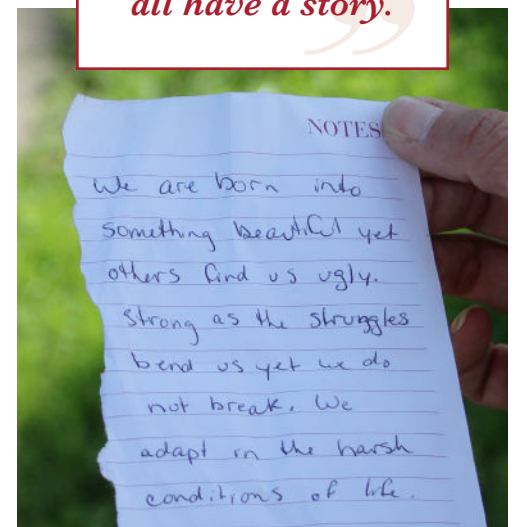 all have a story.
”
NOTES
We are born into
something beautiful yet
others find us ugly.
Strong as the struggles
bend us yet we do
not break. We
adapt in the harsh
conditions of life.